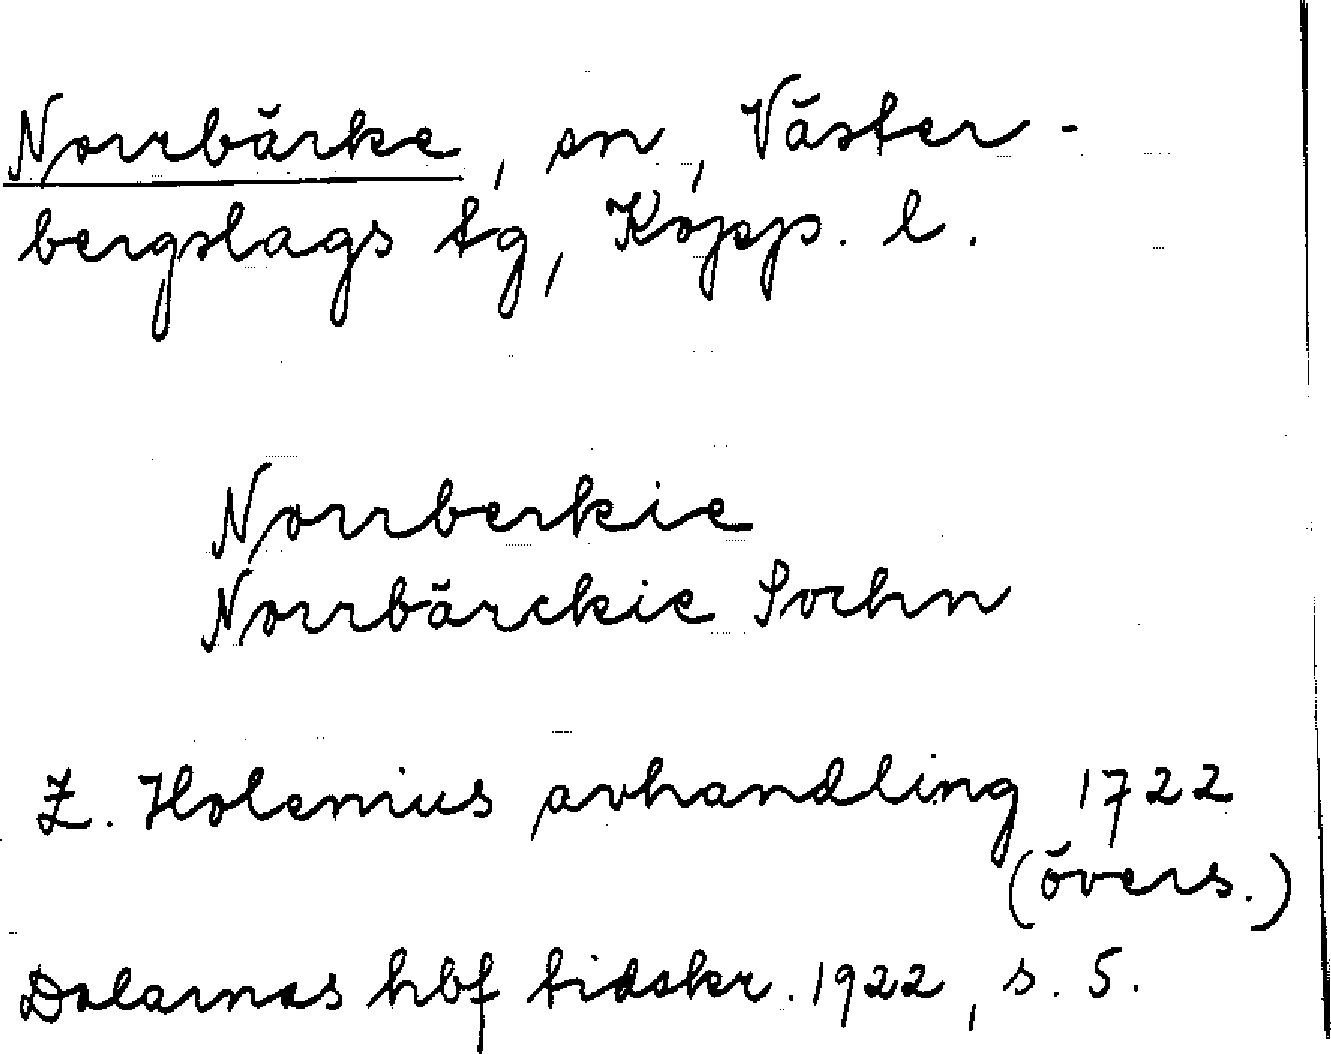 Norrbärke, sn, Väster-
bergslags tg, Kopp. l.
Norrberkie
Norrbärckie Sochn
Z. Holenius avhandling 1722
(övers.)
Dalarnas hbf tidskr. 1922, s. 5.